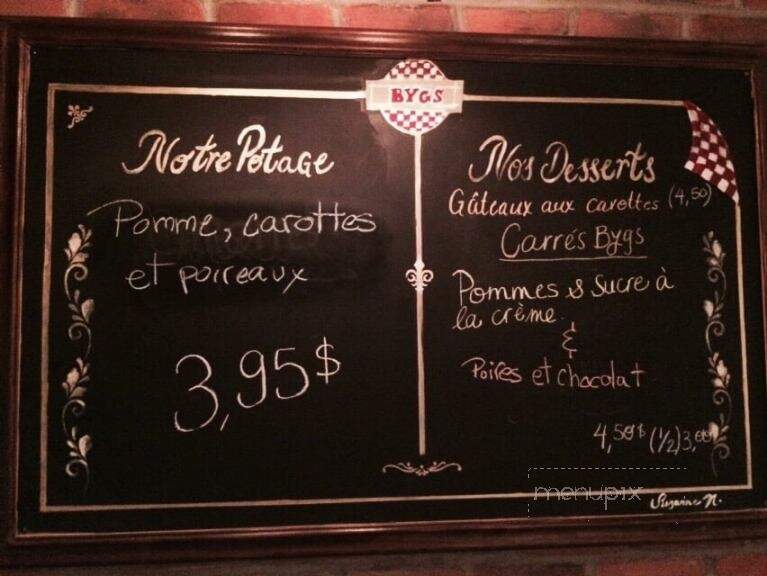 BYGS
Notre Potage
Pomme, carottes
et poireaux
3,95$
Nos Desserts
Gâteaux aux carottes (4,50)
Carrés Bygs
Pommes & Sucre à
la crème.
&
Poires et chocolat
4,50$ (1/2) 3,00
menupix